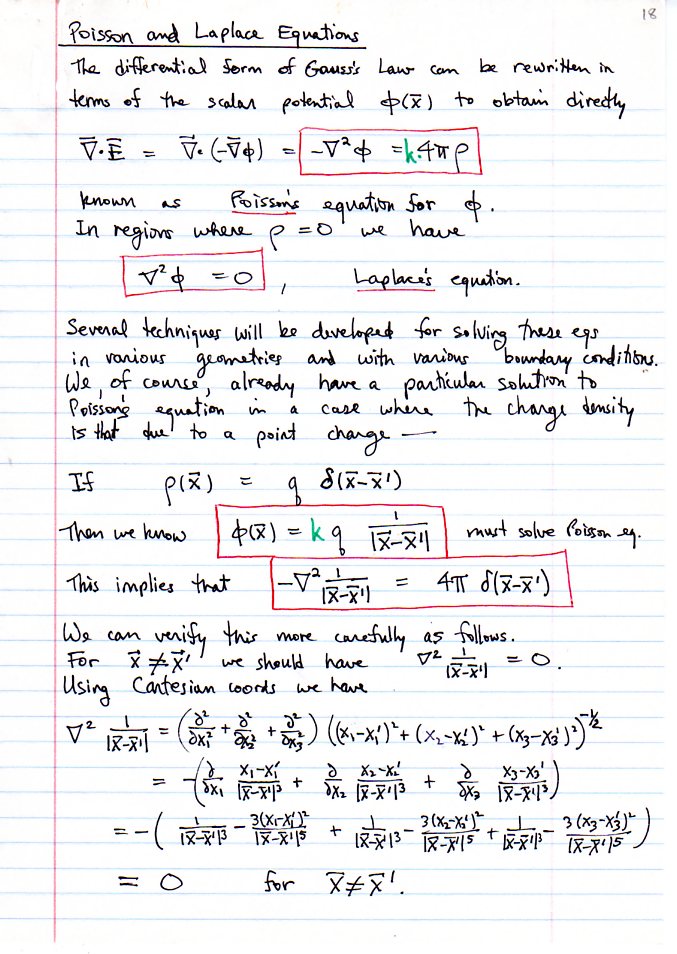 18
Poisson and Laplace Equations
The differential form of Gauss's Law can be rewritten in
terms of the scalar potential ϕ(x̄) to obtain directly
∇⃗·E⃗ = ∇⃗·(-∇⃗ϕ) = -∇²ϕ = k·4πρ
known as Poisson's equation for ϕ.
In regions where ρ = 0 we have
∇²ϕ = 0 , Laplace's equation.
Several techniques will be developed for solving these eqs
in various geometries and with various boundary conditions.
We, of course, already have a particular solution to
Poisson's equation in a case where the charge density
is that due to a point charge —
If ρ(x̄) = q δ(x̄-x̄')
Then we know ϕ(x̄) = k q 1/|x̄-x̄'| must solve Poisson eq.
This implies that -∇² 1/|x̄-x̄'| = 4π δ(x̄-x̄')
We can verify this more carefully as follows.
For x̄ ≠ x̄' we should have ∇² 1/|x̄-x̄'| = 0.
Using Cartesian coords we have
∇² 1/|x̄-x̄'| = (∂²/∂x₁² + ∂²/∂x₂² + ∂²/∂x₃²) ((x₁-x₁')² + (x₂-x₂')² + (x₃-x₃')²)^-1/2
= -(∂/∂x₁ (x₁-x₁')/|x̄-x̄'|³ + ∂/∂x₂ (x₂-x₂')/|x̄-x̄'|³ + ∂/∂x₃ (x₃-x₃')/|x̄-x̄'|³)
= -(1/|x̄-x̄'|³ - 3(x₁-x₁')²/|x̄-x̄'|⁵ + 1/|x̄-x̄'|³ - 3(x₂-x₂')²/|x̄-x̄'|⁵ + 1/|x̄-x̄'|³ - 3(x₃-x₃')²/|x̄-x̄'|⁵)
= 0 for x̄ ≠ x̄'.